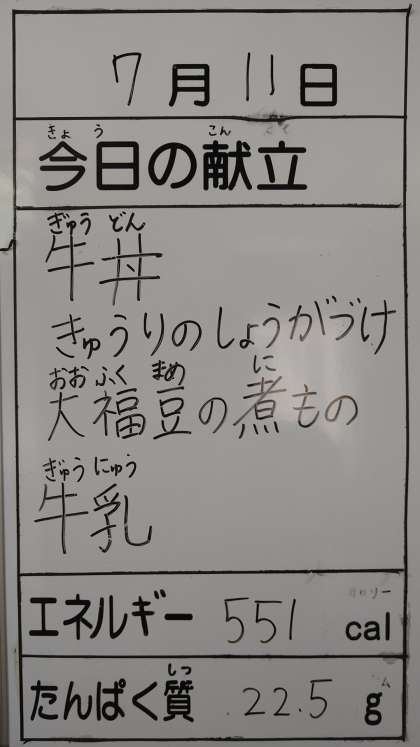 7月11日
きょう こん
今日の献立
ぎゅう どん
牛丼
きゅうりのしょうがづけ
おお ふく まめ に
大福豆の煮もの
ぎゅう にゅう
牛乳
エネルギー 551 cal
しつ
たんぱく質 22.5 g